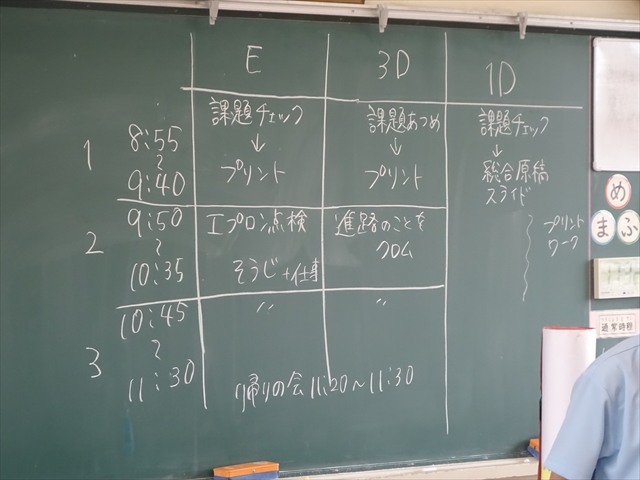 E 3D 1D
1
8:55
〜
9:40
課題チェック
↓
プリント
課題あつめ
↓
プリント
課題チェック
↓
総合原稿
スライド
2
9:50
〜
10:35
エプロン点検
そうじ+仕事
進路のことを
クロム
プリント
ワーク
3
10:45
〜
11:30
〃
〃
帰りの会 11:20~11:30
め
ま
ふ
通常時程